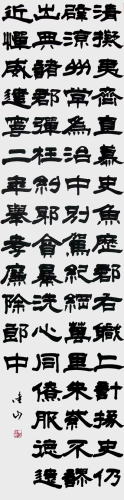 清擬夷齊直慕史魚歷郡右職上計掾史仍
辟涼州常為治中別駕紀綱萬里朱紫不謬
出典諸郡彈枉糾邪貪暴洗心同僚服德遠
近憚威建寧二年舉孝廉除郎中